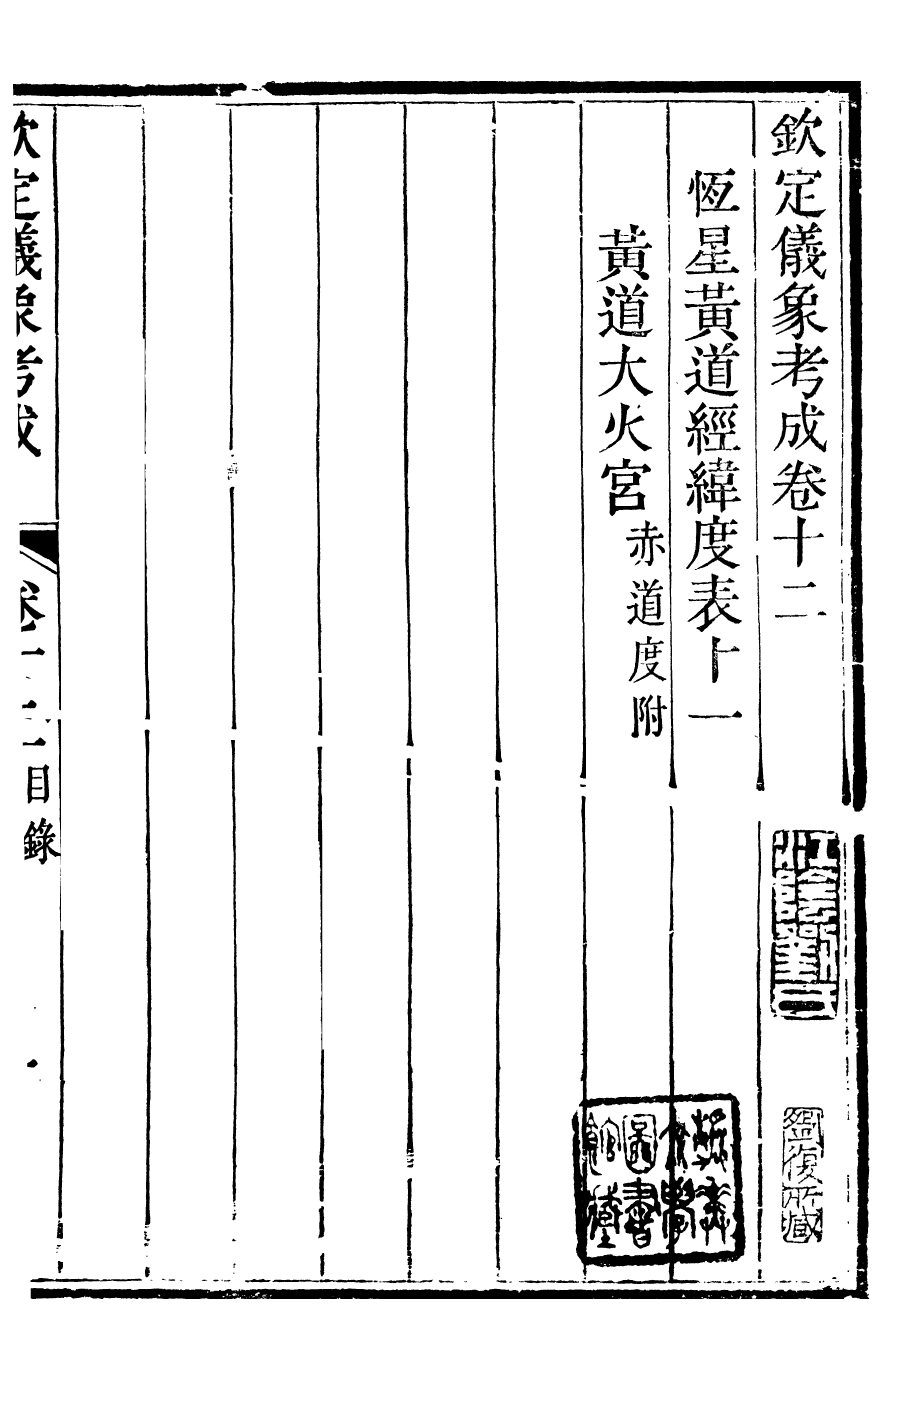 欽定儀象考成卷十二
恆星黃道經緯度表十一
黃道大火宮赤道度附
欽定儀象考成
卷十二目錄
一
劉復所藏
圖書